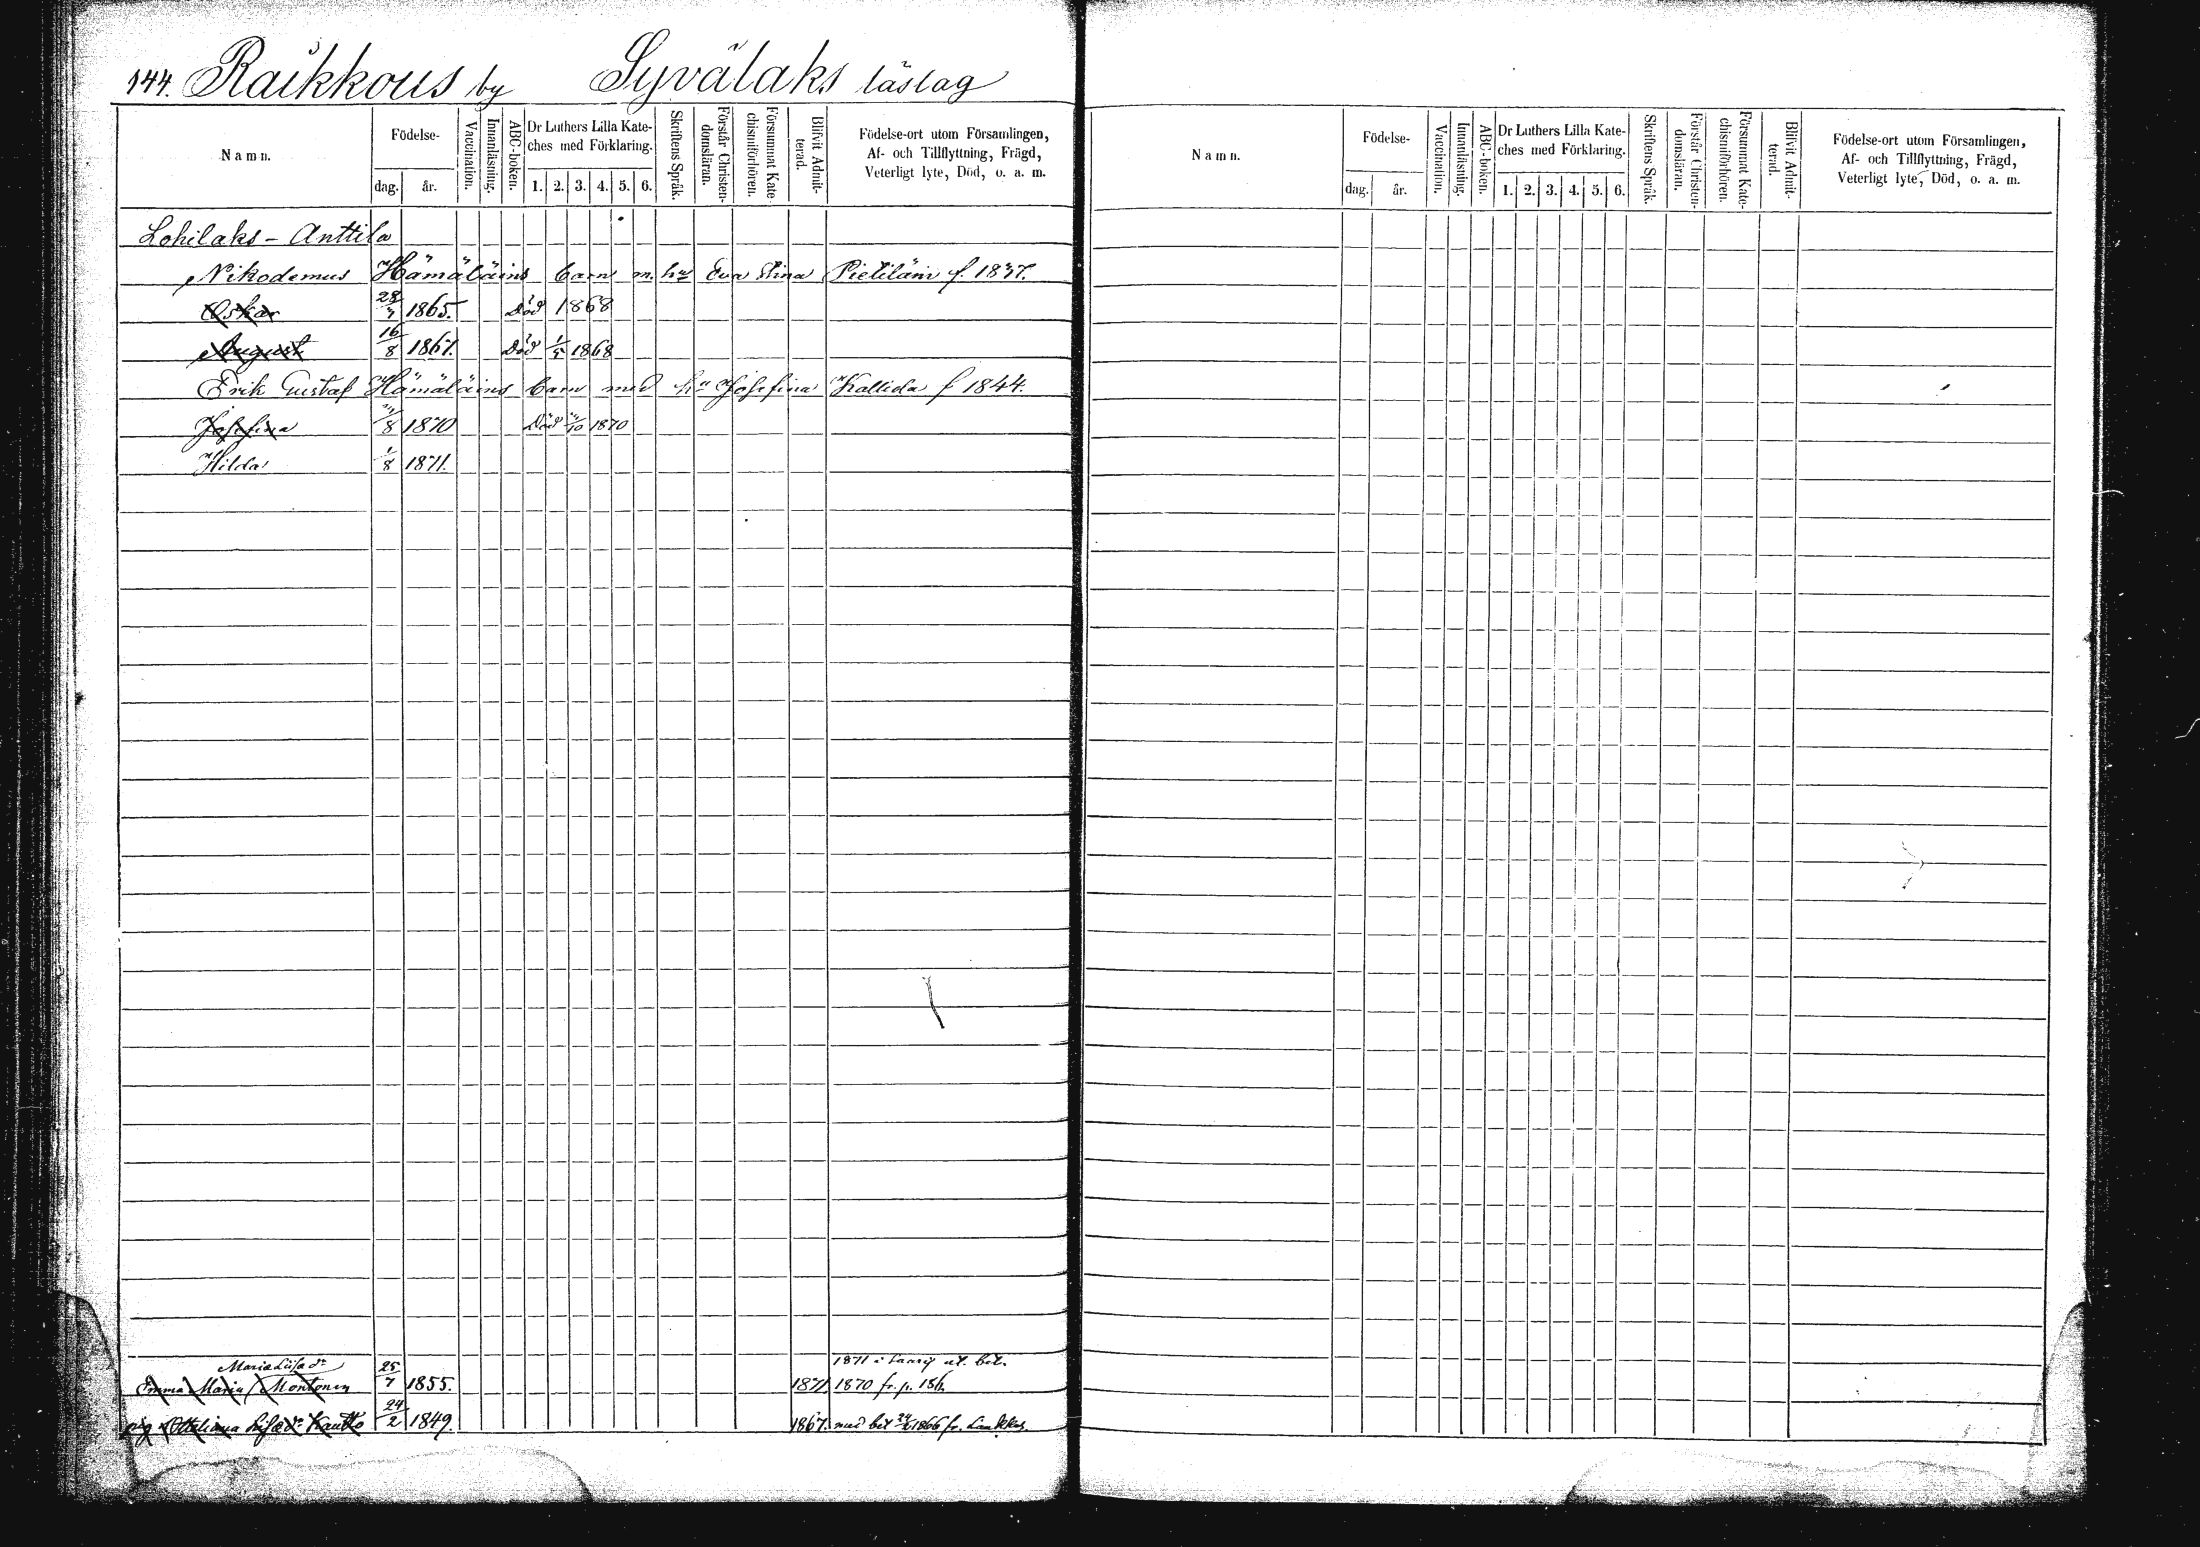 144. Raikkous by Syvälaks läslag
Namn. Födelse- dag. år. Vaccination. Innanläsning. ABC-boken. Dr Luthers Lilla Kateches med Förklaring. 1. 2. 3. 4. 5. 6. Skriftens Språk. Förstår Christendomsläran. Försummat Katechismiförhören. Blifvit Admitterad. Födelse-ort utom Församlingen, Af- och Tillflyttning, Frägd, Veterligt lyte, Död, o. a. m.
Lohilaks - Anttila
Nikodemus Hämäläins barn m. hu Eva Stina Pietiläin f. 1837.
Oskar 28/7 1865. Död 1868
August 16/8 1867. Död 1/5 1868
Erik Gustaf Hämäläins barn med hu Josefina Kallida f 1844.
Josefina /8 1870 Död /10 1870
Hilda 1/8 1871.
Maria Lisa dr 1871 i bet.
Emma Maria Montonen 25/7 1855. 1871 1870 fr. p. 156.
pig Ottiliana Lisæ dr Kautto 24/2 1849. 1867. med bet 1866 fr.
Namn. Födelse- dag. år. Vaccination. Innanläsning. ABC-boken. Dr Luthers Lilla Kateches med Förklaring. 1. 2. 3. 4. 5. 6. Skriftens Språk. Förstår Christendomsläran. Försummat Katechismiförhören. Blifvit Admitterad. Födelse-ort utom Församlingen, Af- och Tillflyttning, Frägd, Veterligt lyte, Död, o. a. m.